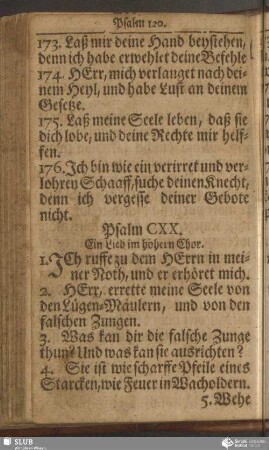 Psalm 120.
173. Laß mir deine Hand beystehen,
denn ich habe erwehlet deine Befehle
174. HErr, mich verlanget nach dei-
nem Heyl, und habe Lust an deinem
Gesetze.
175. Laß meine Seele leben, daß sie
dich lobe, und deine Rechte mir helf-
fen.
176. Ich bin wie ein verirret und ver-
lohren Schaaff, suche deinen Knecht,
denn ich vergesse deiner Gebote
nicht.
Psalm CXX.
Ein Lied im höhern Chor.
1. JCh ruffe zu dem HErrn in mei-
ner Noth, und er erhöret mich.
2. HErr, errette meine Seele von
den Lügen-Mäulern, und von den
falschen Zungen.
3. Was kan dir die falsche Zunge
thun? Und was kan sie ausrichten?
4. Sie ist wie scharffe Pfeile eines
Starcken, wie Feuer in Wacholdern.
5. Wehe
SLUB